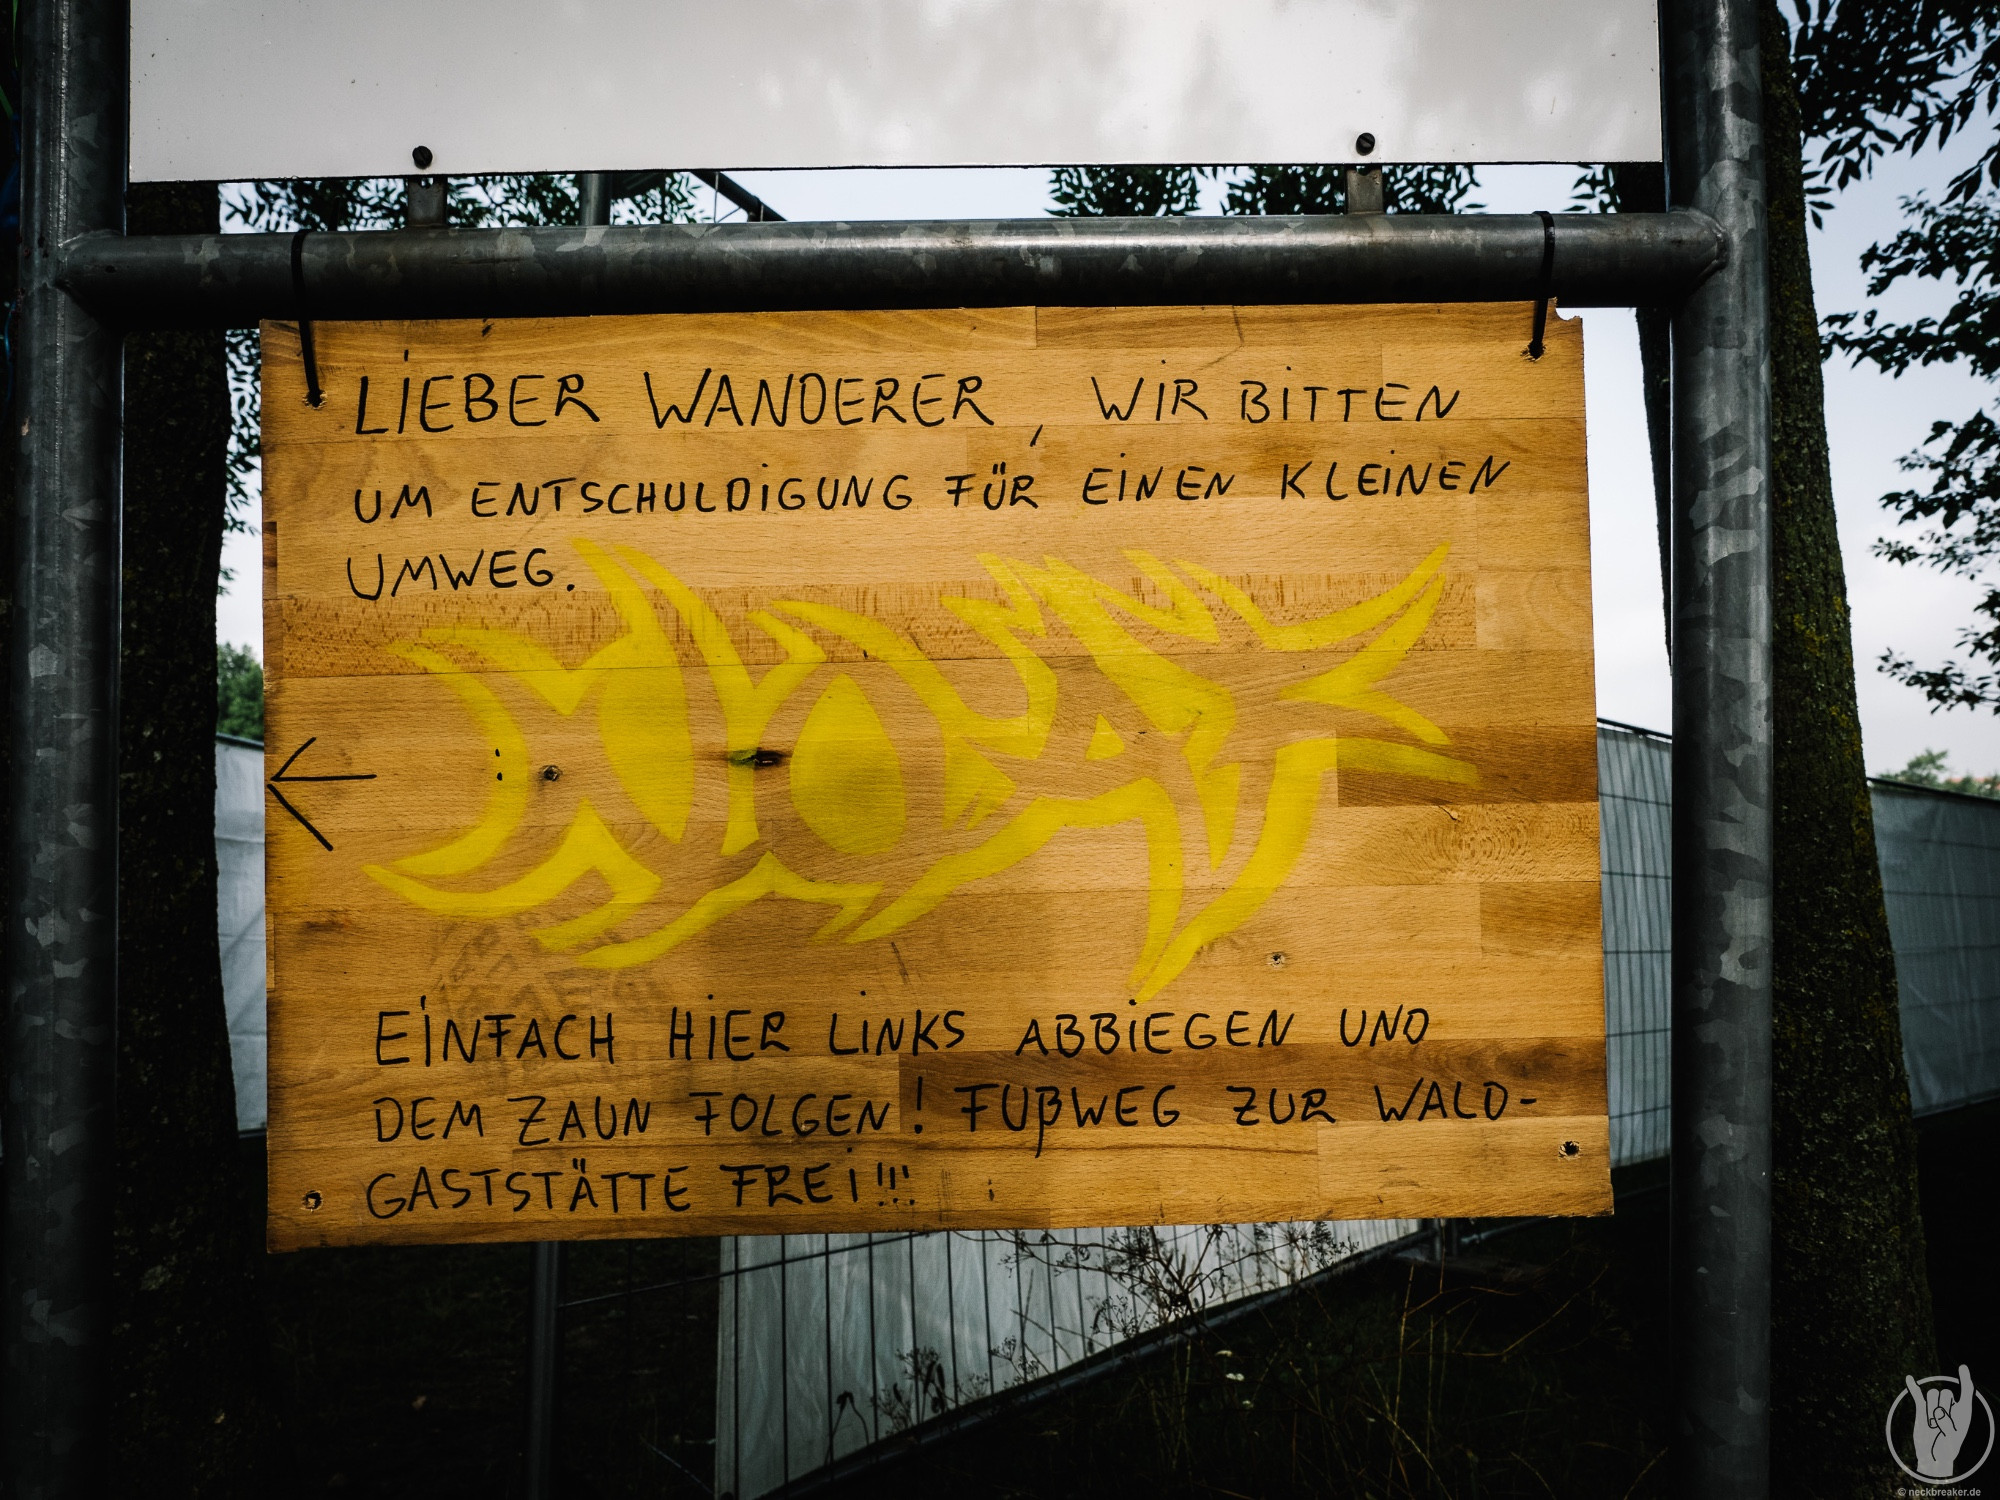 LIEBER WANDERER, WIR BITTEN
UM ENTSCHULDIGUNG FÜR EINEN KLEINEN
UMWEG.
EINFACH HIER LINKS ABBIEGEN UND
DEM ZAUN FOLGEN! FUßWEG ZUR WALD-
GASTSTÄTTE FREI!!!
© neckbreaker.de